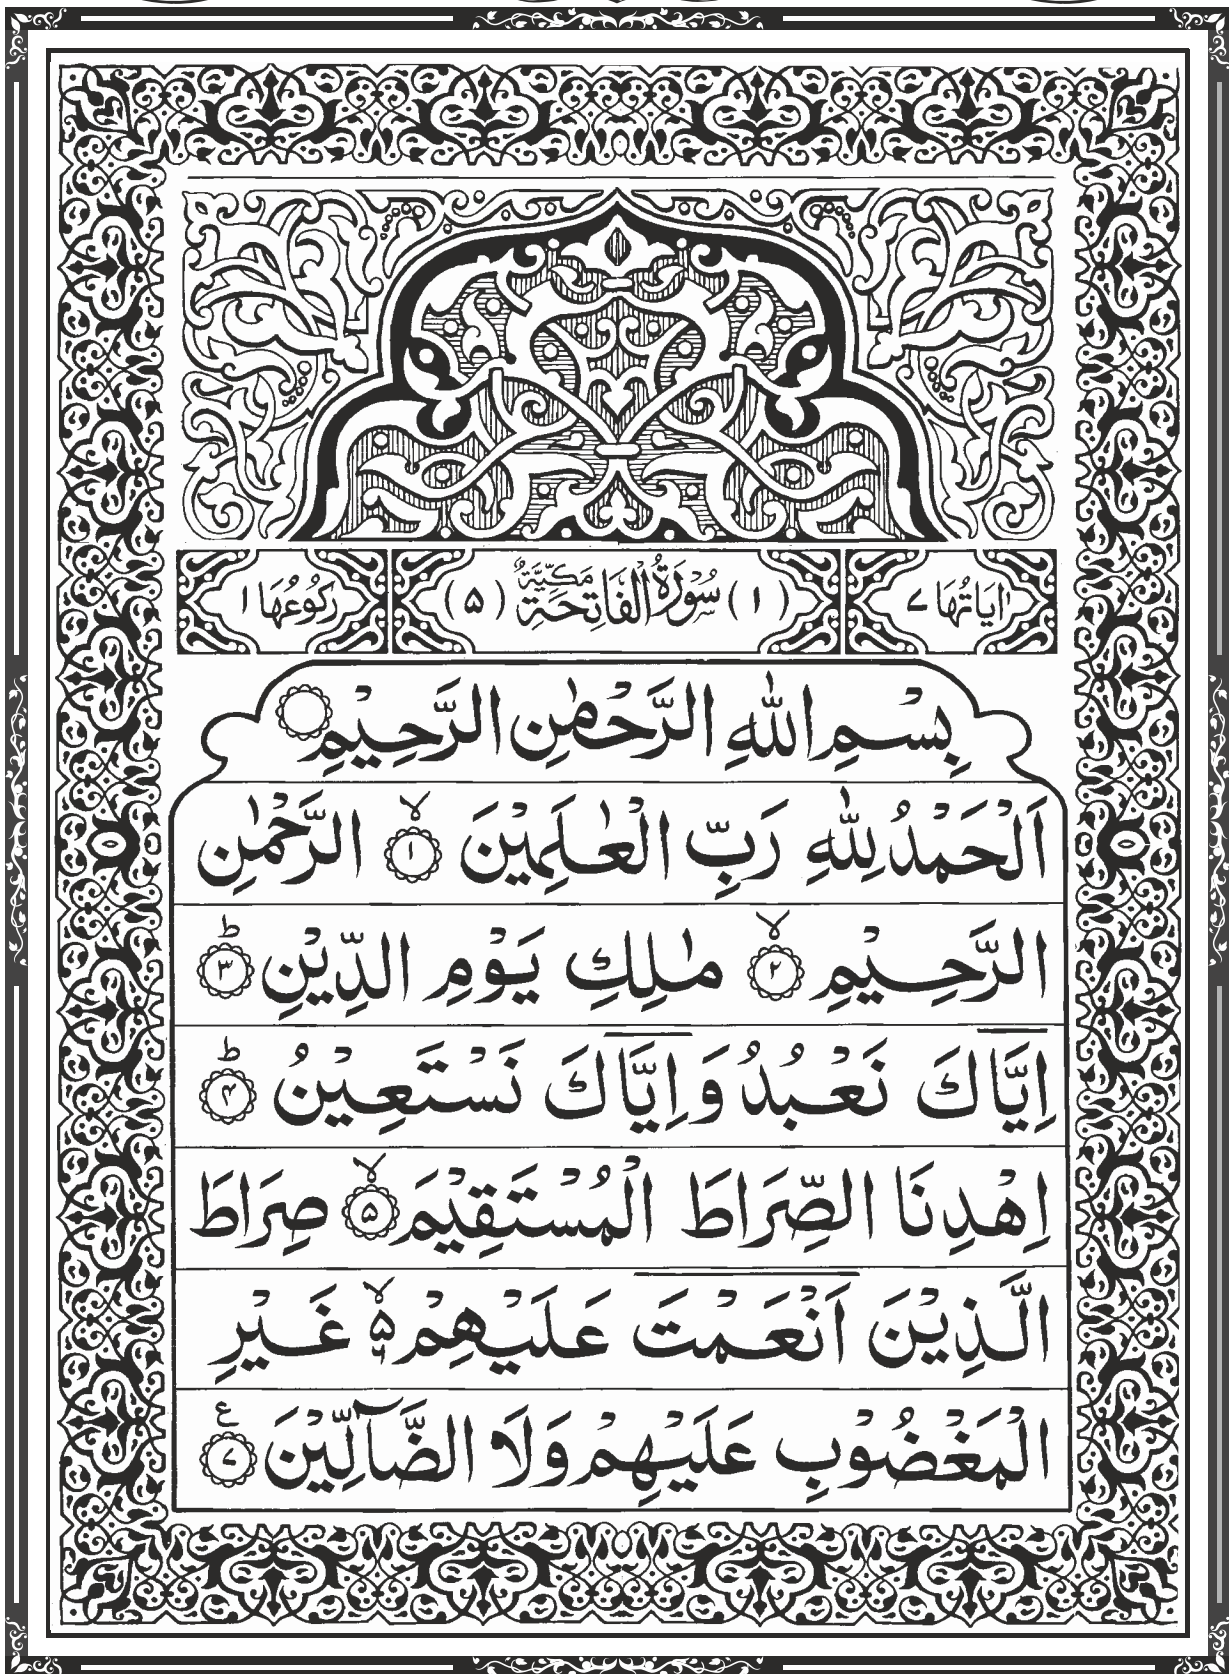 اٰيَاتُهَا ٧ (١) سُوْرَةُ الْفَاتِحَةِ مَكِّيَّةٌ (٥) رُكُوْعُهَا ١
بِسْمِ اللهِ الرَّحْمٰنِ الرَّحِيْمِ
اَلْحَمْدُ لِلّٰهِ رَبِّ الْعٰلَمِيْنَ ۙ ١ الرَّحْمٰنِ
الرَّحِيْمِ ۙ ٢ مٰلِكِ يَوْمِ الدِّيْنِ ؕ ٣
اِيَّاكَ نَعْبُدُ وَاِيَّاكَ نَسْتَعِيْنُ ؕ ۴
اِهْدِنَا الصِّرَاطَ الْمُسْتَقِيْمَ ۙ ۵ صِرَاطَ
الَّذِيْنَ اَنْعَمْتَ عَلَيْهِمْ ۙ ۵ ۶ غَيْرِ
الْمَغْضُوْبِ عَلَيْهِمْ وَلَا الضَّآلِّيْنَ ع ٧